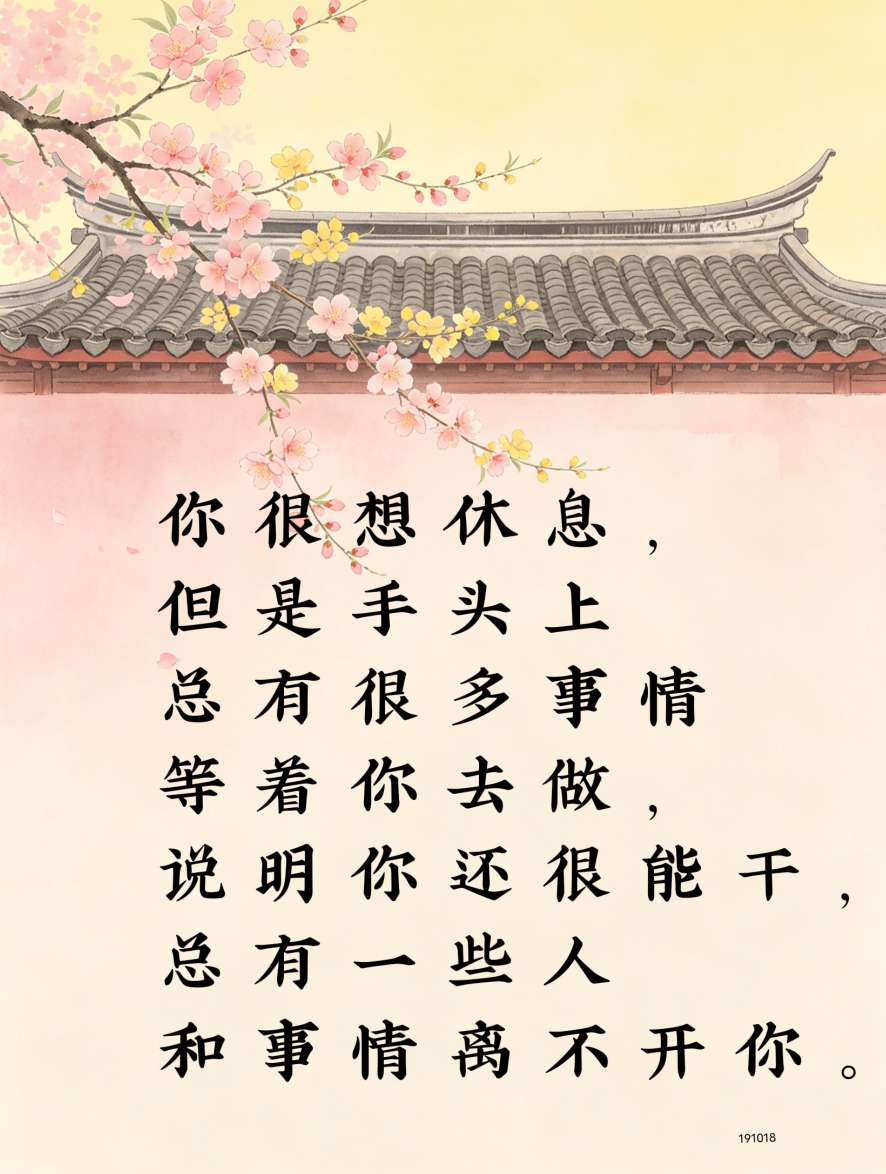 你很想休息，
但是手头上
总有很多事情
等着你去做，
说明你还很能干，
总有一些人
和事情离不开你。
191018